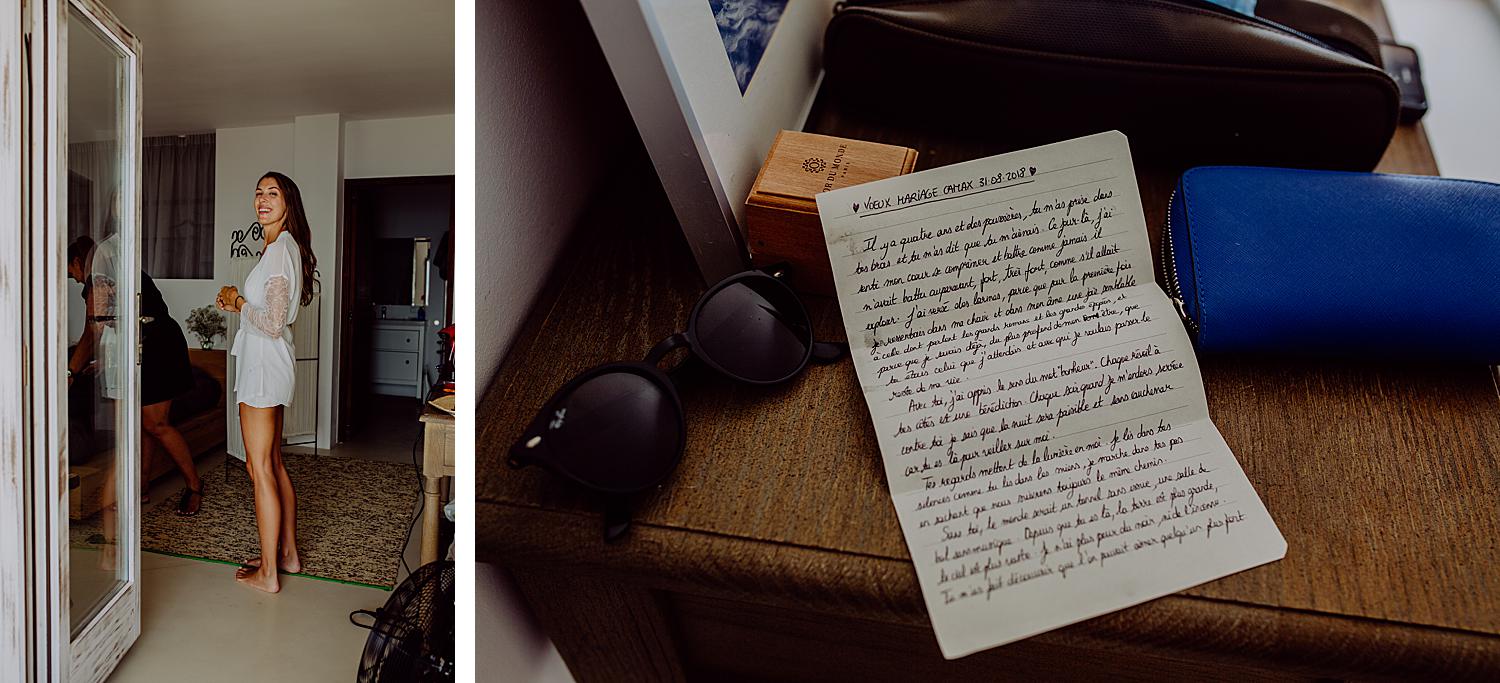 OR DU MONDE
PARIS
Ray-Ban
♥ VOEUX MARIAGE CAMAX 31-08-2018 ♥
Il y a quatre ans et des poussières, tu m'as prise dans
tes bras et tu m'as dit que tu m'aimais. Ce jour-là, j'ai
senti mon coeur se comprimer et battre comme jamais il
n'avait battu auparavant, fort, très fort, comme s'il allait
exploser. J'ai versé des larmes, parce que pour la première fois
je ressentais dans ma chair et dans mon âme une joie semblable
à celle dont parlent les grands romans et les grandes épopées, et
parce que je savais déjà, du plus profond de mon être, que
tu étais celui que j'attendais et avec qui je voulais passer le
reste de ma vie.
Avec toi, j'ai appris le sens du mot "bonheur". Chaque réveil à
tes côtés est une bénédiction. Chaque soir quand je m'endors serrée
contre toi je sais que la nuit sera paisible et sans cauchemar
car tu es là pour veiller sur moi.
Tes regards mettent de la lumière en moi. Je lis dans tes
silences comme tu lis dans les miens, je marche dans tes pas
en sachant que nous suivrons toujours le même chemin.
Sans toi, le monde serait un tunnel sans issue, une salle de
bal sans musique. Depuis que tu es là, la terre est plus grande,
le ciel est plus vaste. Je n'ai plus peur du noir, ni de l'orage.
Tu m'as fait découvrir que l'on pouvait aimer quelqu'un plus fort